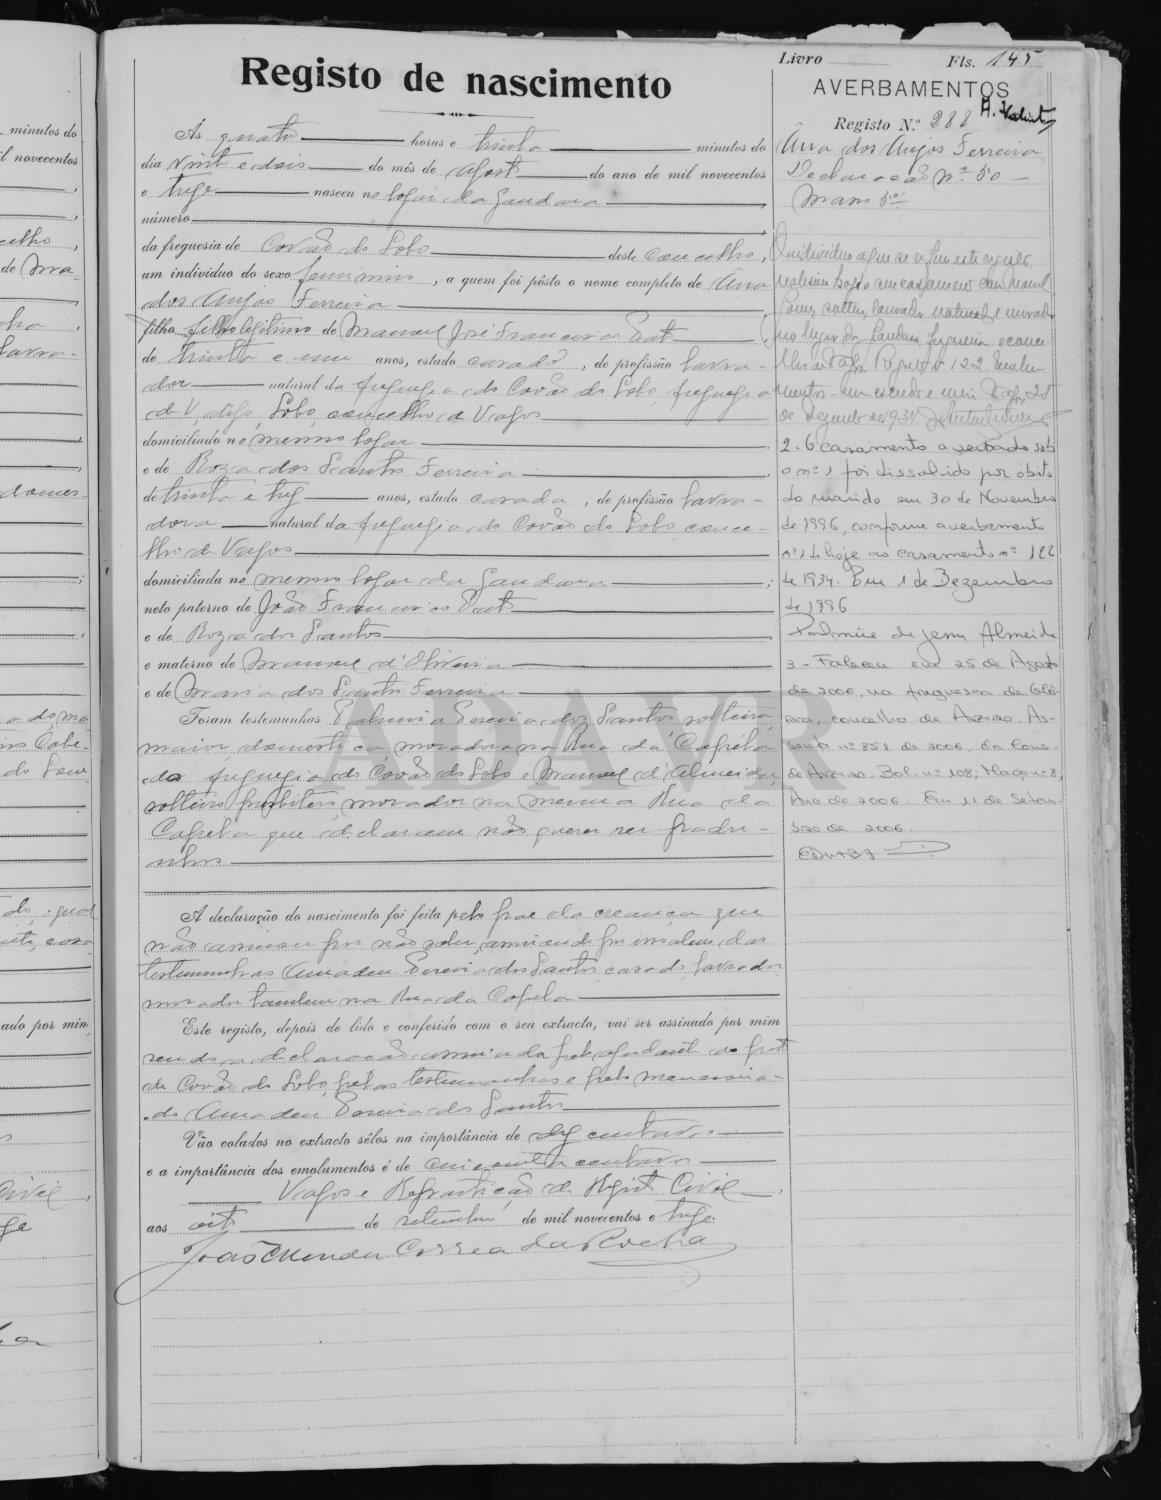 Registo de nascimento
Ás quatro horas e trinta minutos do
dia vinte e dois do mês de Agosto do ano de mil novecentos
e treze nasceu no logar da Gandara
número
da freguesia de Covão do Lobo deste concelho,
um individuo do sexo feminino, a quem foi pôsto o nome completo de Ana
dos Anjos Ferreira
filho legitimo de Manuel José Francisco
de trinta e um anos, estado casado, de profissão lavra-
dor natural da freguezia do Covão do Lobo, freguezia
de V, digo, Lobo, concelho de Vagos
domiciliado no mesmo logar
e de Roza dos Santos Ferreira
de trinta e trez anos, estado casada, de profissão lavra-
dora natural da freguezia do Covão do Lobo, conce-
lho de Vagos
domiciliada no mesmo logar da Gandara
neto paterno de João Francisco
e de Roza dos Santos
e materno de Manuel d'Oliveira
e de Maria dos Santos Ferreira
Foram testemunhas Pereira dos Santos, solteira,
maior, domestica, moradora na Rua da Capela
da freguezia do Covão do Lobo e Manuel d'Almeida,
solteiro, morador na mesma Rua da
Capela que declararam não querer ser padri-
nhos
A declaração do nascimento foi feita pelo pae da creança que
não assinou por não saber, assinando por
testemunhas Amadeu Pereira dos Santos, casado, lavrador
morador tambem na Rua da Capela
Este registo, depois de lido e conferido com o seu extracto, vai ser assinado por mim
sendo a declaração assinada pelo ajudante do posto
de Covão do Lobo, pelas testemunhas e pelo menciona-
do Amadeu Pereira dos Santos
Vão colados no extracto sêlos na importância de dez centavos
e a importância dos emolumentos é de cincoenta centavos
Vagos e Repartição do Registo Civil
aos oito de setembro de mil novecentos e treze
João Mendes Correa da Rocha
Livro Fls. 145
AVERBAMENTOS
Registo N.º 288
Ana dos Anjos Ferreira
Declaração nº 50
Maço 5º
O individuo a que se refere este registo,
casamento com Manuel
solteiro, lavrador, natural e morador
no lugar da Gandara, freguesia e conce-
lho de Vagos Registo nº 122. Emolu-
mentos - um escudo e meio Vagos, 25
de Dezembro de 1934
2 - O casamento averbado sob
o nº 1 foi dissolvido por óbito
do marido em 30 de Novembro
de 1996, conforme averbamento
nº 1 de hoje ao casamento nº 122
de 1934. Em 1 de Dezembro
de 1996
de Jesus Almeida
3 - Faleceu em 25 de Agosto
de 2006, na freguesia da Gló-
ria, concelho de Aveiro. As-
sento nº 851 de 2006, da Cons.
de Aveiro. Bol. nº 108; Maço nº 8;
Ano de 2006. Em 11 de Setem-
bro de 2006.
ADAVR
minutos do
il novecentos
ado por mim,